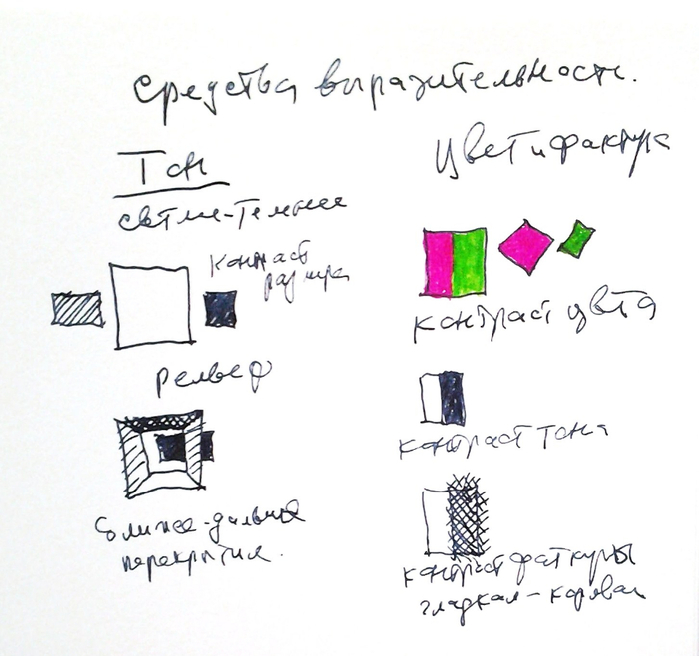 Средства выразительности.
Тон
светлее-темнее
контраст
размера
рельеф
ближе-дальше
перекрытия.
Цвет и фактура
контраст цвета
контраст тона
контраст фактуры
гладкая-корявая